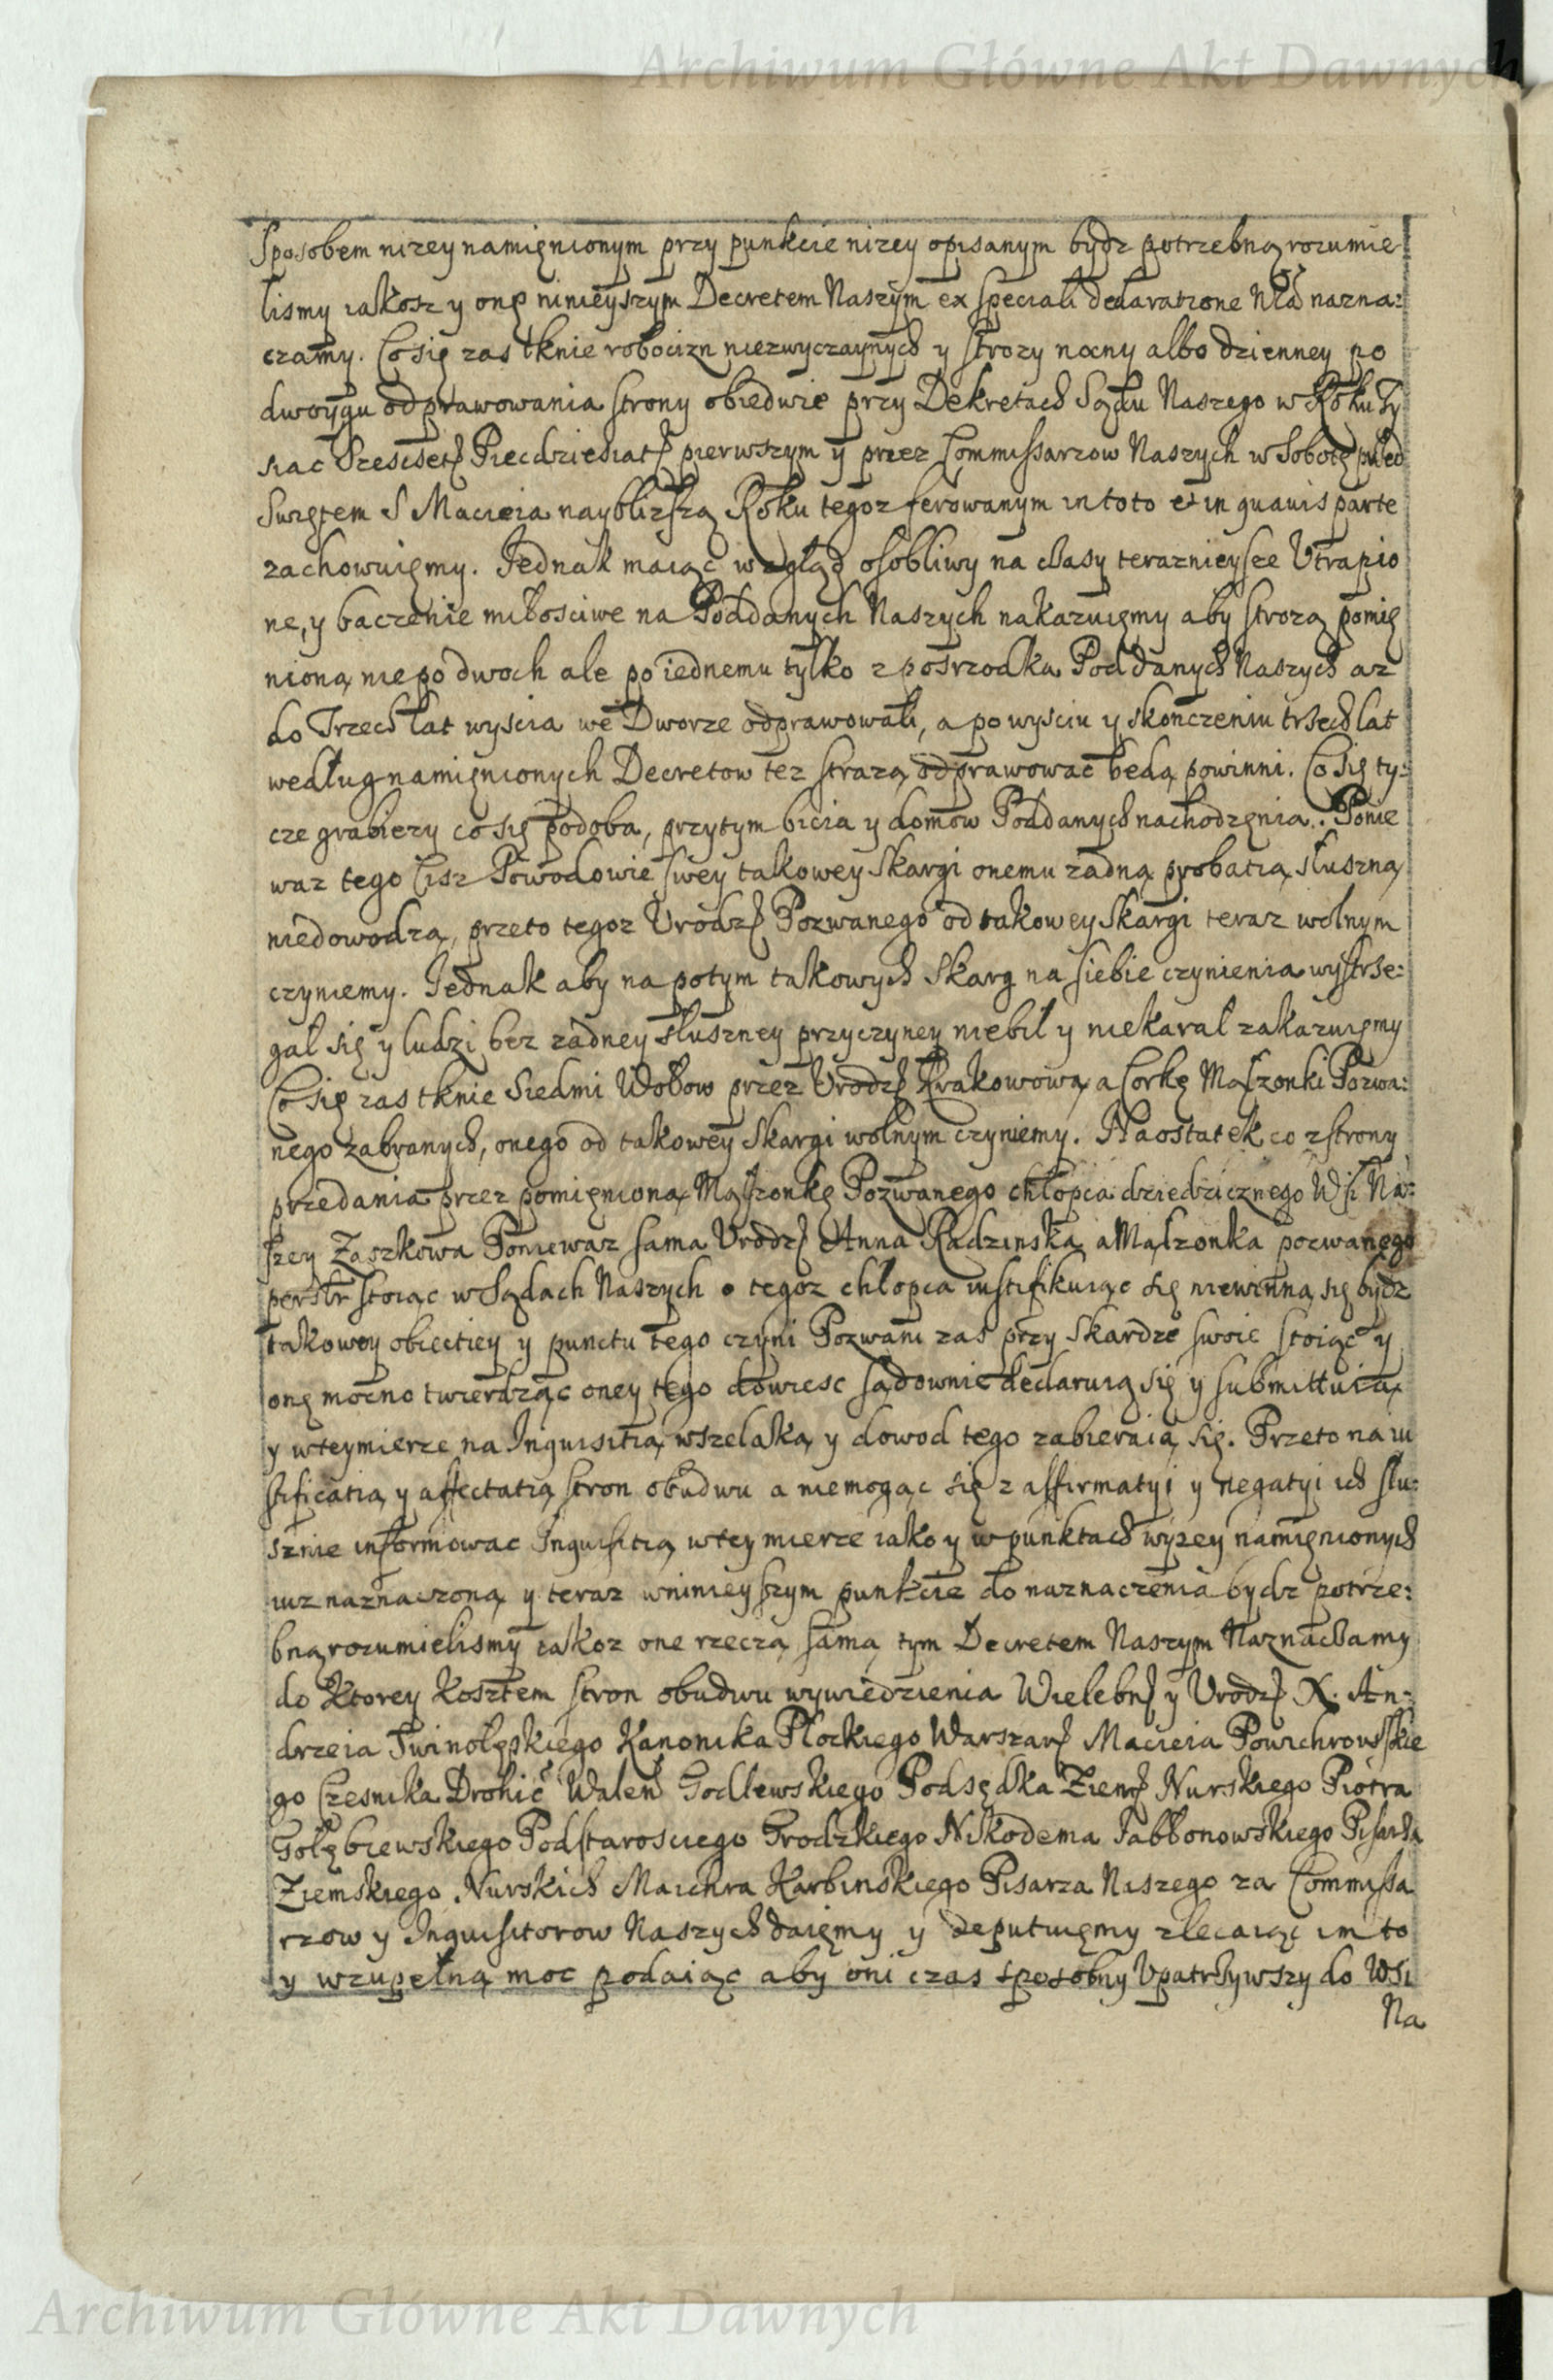 Archiwum Główne Akt Dawnych
Sposobem nizey namięnionym przy punkcie nizey opisanym bydz potrzebną rozumie
lismy iakosz y onę ninieyszym Decretem Naszym ex speciali declaratione Nrã nazna:
czamy. Co się zas tknie robocizn niezwyczaynych y strozy nocny albo dzienney po
dwoygu odprawowania strony obiedwie przy Dekretach Sądu Naszego w Roku Ty
siac Szescset Piecdziesiat pierwszym y przez Commissarzow Naszych w Sobotę przed
Swiętem S Macieia naybliższą Roku tegoz ferowanym in toto et in quavis parte
zachowuięmy. Jednak maiąc wzgląd osobliwy na czasy teraznieysze Utrapio
ne, y baczenie miłosciwe na Poddanych Naszych nakazuięmy aby strozą pomię
nioną nie po dwoch ale po iednemu tylko z posrzodka Poddanych Naszych az
do Trzech lat wyscia we Dworze odprawowali, a po wysciu y skonczeniu trzech lat
według namięnionych Decretow tez strazą odprawowac będą powinni. Co się ty:
cze grabiezy co się podoba, przytym bicia y domow Poddanych nachodzęnia. Ponie
waz tego Cisz Powodowie swey takowey skargi onemu zadną probatią słuszną
niedowodzą, przeto tegoz Urodz Pozwanego od takowey skargi teraz wolnym
czyniemy. Jednak aby na potym takowych skarg na siebie czynienia wystrze:
gał się y ludzi bez zadney słuszney przyczyney niebił y niekarał zakazuięmy
Co się zas tknie Siedmi Wołow przez Urodz Krakowową a Corkę Małzonki Pozwa:
nego zabranych, onego od takowey skargi wolnym czyniemy. Naostatek co z strony
przedania przez pomięnioną Małzonkę Pozwanego chłopca dziedzicznego Wsi Na:
szey Zaszkowa Poniewaz sama Urodz Anna Radzinska a Małzonka pozwanego
perslr stoiąc w Sądach Naszych o tegoz chłopca iustifikuiąc się niewinną się bydz
takowey obiectiey y punctu tego czyni Pozwani zas przy skardze swoie stoiąc y
onę mocno twierdząc oney tego dowiesc sądownie declaruią się y submittuią
y wteymierze na Inquisitią wszelaką y dowod tego zabieraią się. Przeto na iu
stificatią y affectatią stron obudwu a niemogąc się z affirmatyi y negatyi ich słu:
sznie informowac Inquisitią wtey mierze iako y w punktach wyzey namięnionych
iuz naznaczoną y teraz wninieyszym punkcie do naznaczenia bydz potrze:
bną rozumielismy iakoz one rzeczą samą tym Decretem Naszym Naznaczamy
do ktorey kosztem stron obudwu wywiedzienia Wielebn y Urodz X. An:
drzeia Twinolęskiego Kanonika Płockiego Warszaw Macieia Powichrowsskie
go Czesnika Drohic Walen Godlewskiego Podsędka Ziem Nurskiego Piotra
Gołębiewskiego Podstarosciego Grodzkiego Nikodema Jabłonowskiego Pisarza
Ziemskiego Nurskich Maichra Karbinskiego Pisarza Naszego za Commissa
rzow y Inquisitorow Naszych daięmy y deputuięmy zlecaiąc im to
y wzupełną moc podaiąc aby oni czas sposobny Upatrzywszy do Wsi
Na
Archiwum Główne Akt Dawnych